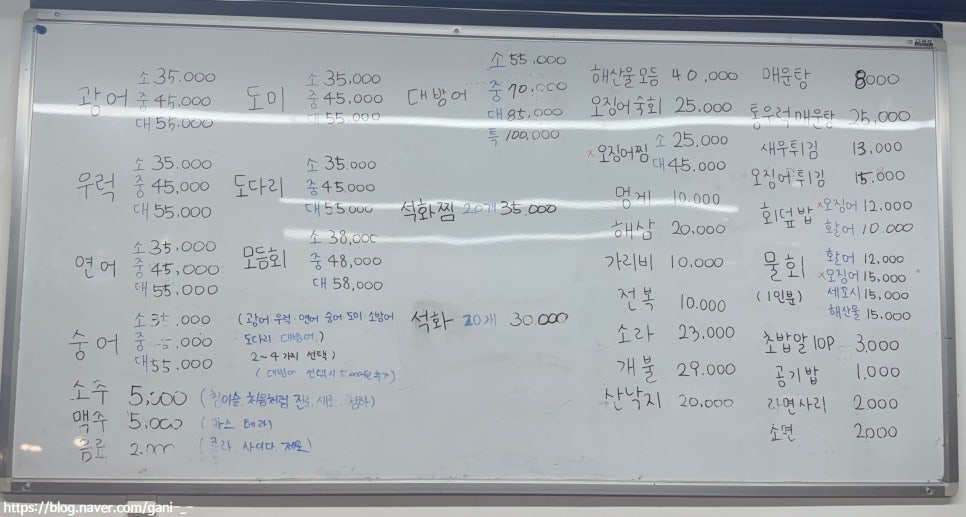 광어 소 35.000
중 45.000
대 55.000
도미 소 35.000
중 45.000
대 55.000
대방어 소 55,000
중 70,000
대 85,000
특 100,000
우럭 소 35.000
중 45,000
대 55,000
도다리 소 35.000
중 45.000
대 55000
석화찜 20개 35.000
연어 소 35.000
중 45,000
대 55.000
모듬회 소 38,000
중 48,000
대 58,000
(광어·우럭·연어·숭어·도미·소방어
도다리·대방어.)
2~4가지 선택)
(대방어 선택시 5.000원 추가)
석화 20개 30.000
숭어 소 35.000
중
대 55.000
소주 5,500 (참이슬, 처음처럼, 진로, 새로, 청하)
맥주 5,000 (카스 테라)
음료 2.000 (콜라, 사이다, 제로)
해산물모듬 40,000
오징어숙회 25.000
x 오징어찜 소 25.000
대 45.000
멍게 10.000
해삼 20.000
가리비 10,000
전복 10.000
소라 23,000
개불 29.000
산낙지 20,000
매운탕 8000
통우럭매운탕 25,000
새우튀김 13,000
오징어튀김 15.000
회덮밥 x오징어 12,000
활어 10.000
물회 활어 12,000
(1인분) x오징어 15,000
세꼬시 15,000
해산물 15,000
초밥알 10P 3,000
공기밥 1.000
라면사리 2000
소면 2000
https://blog.naver.com/gani-_-